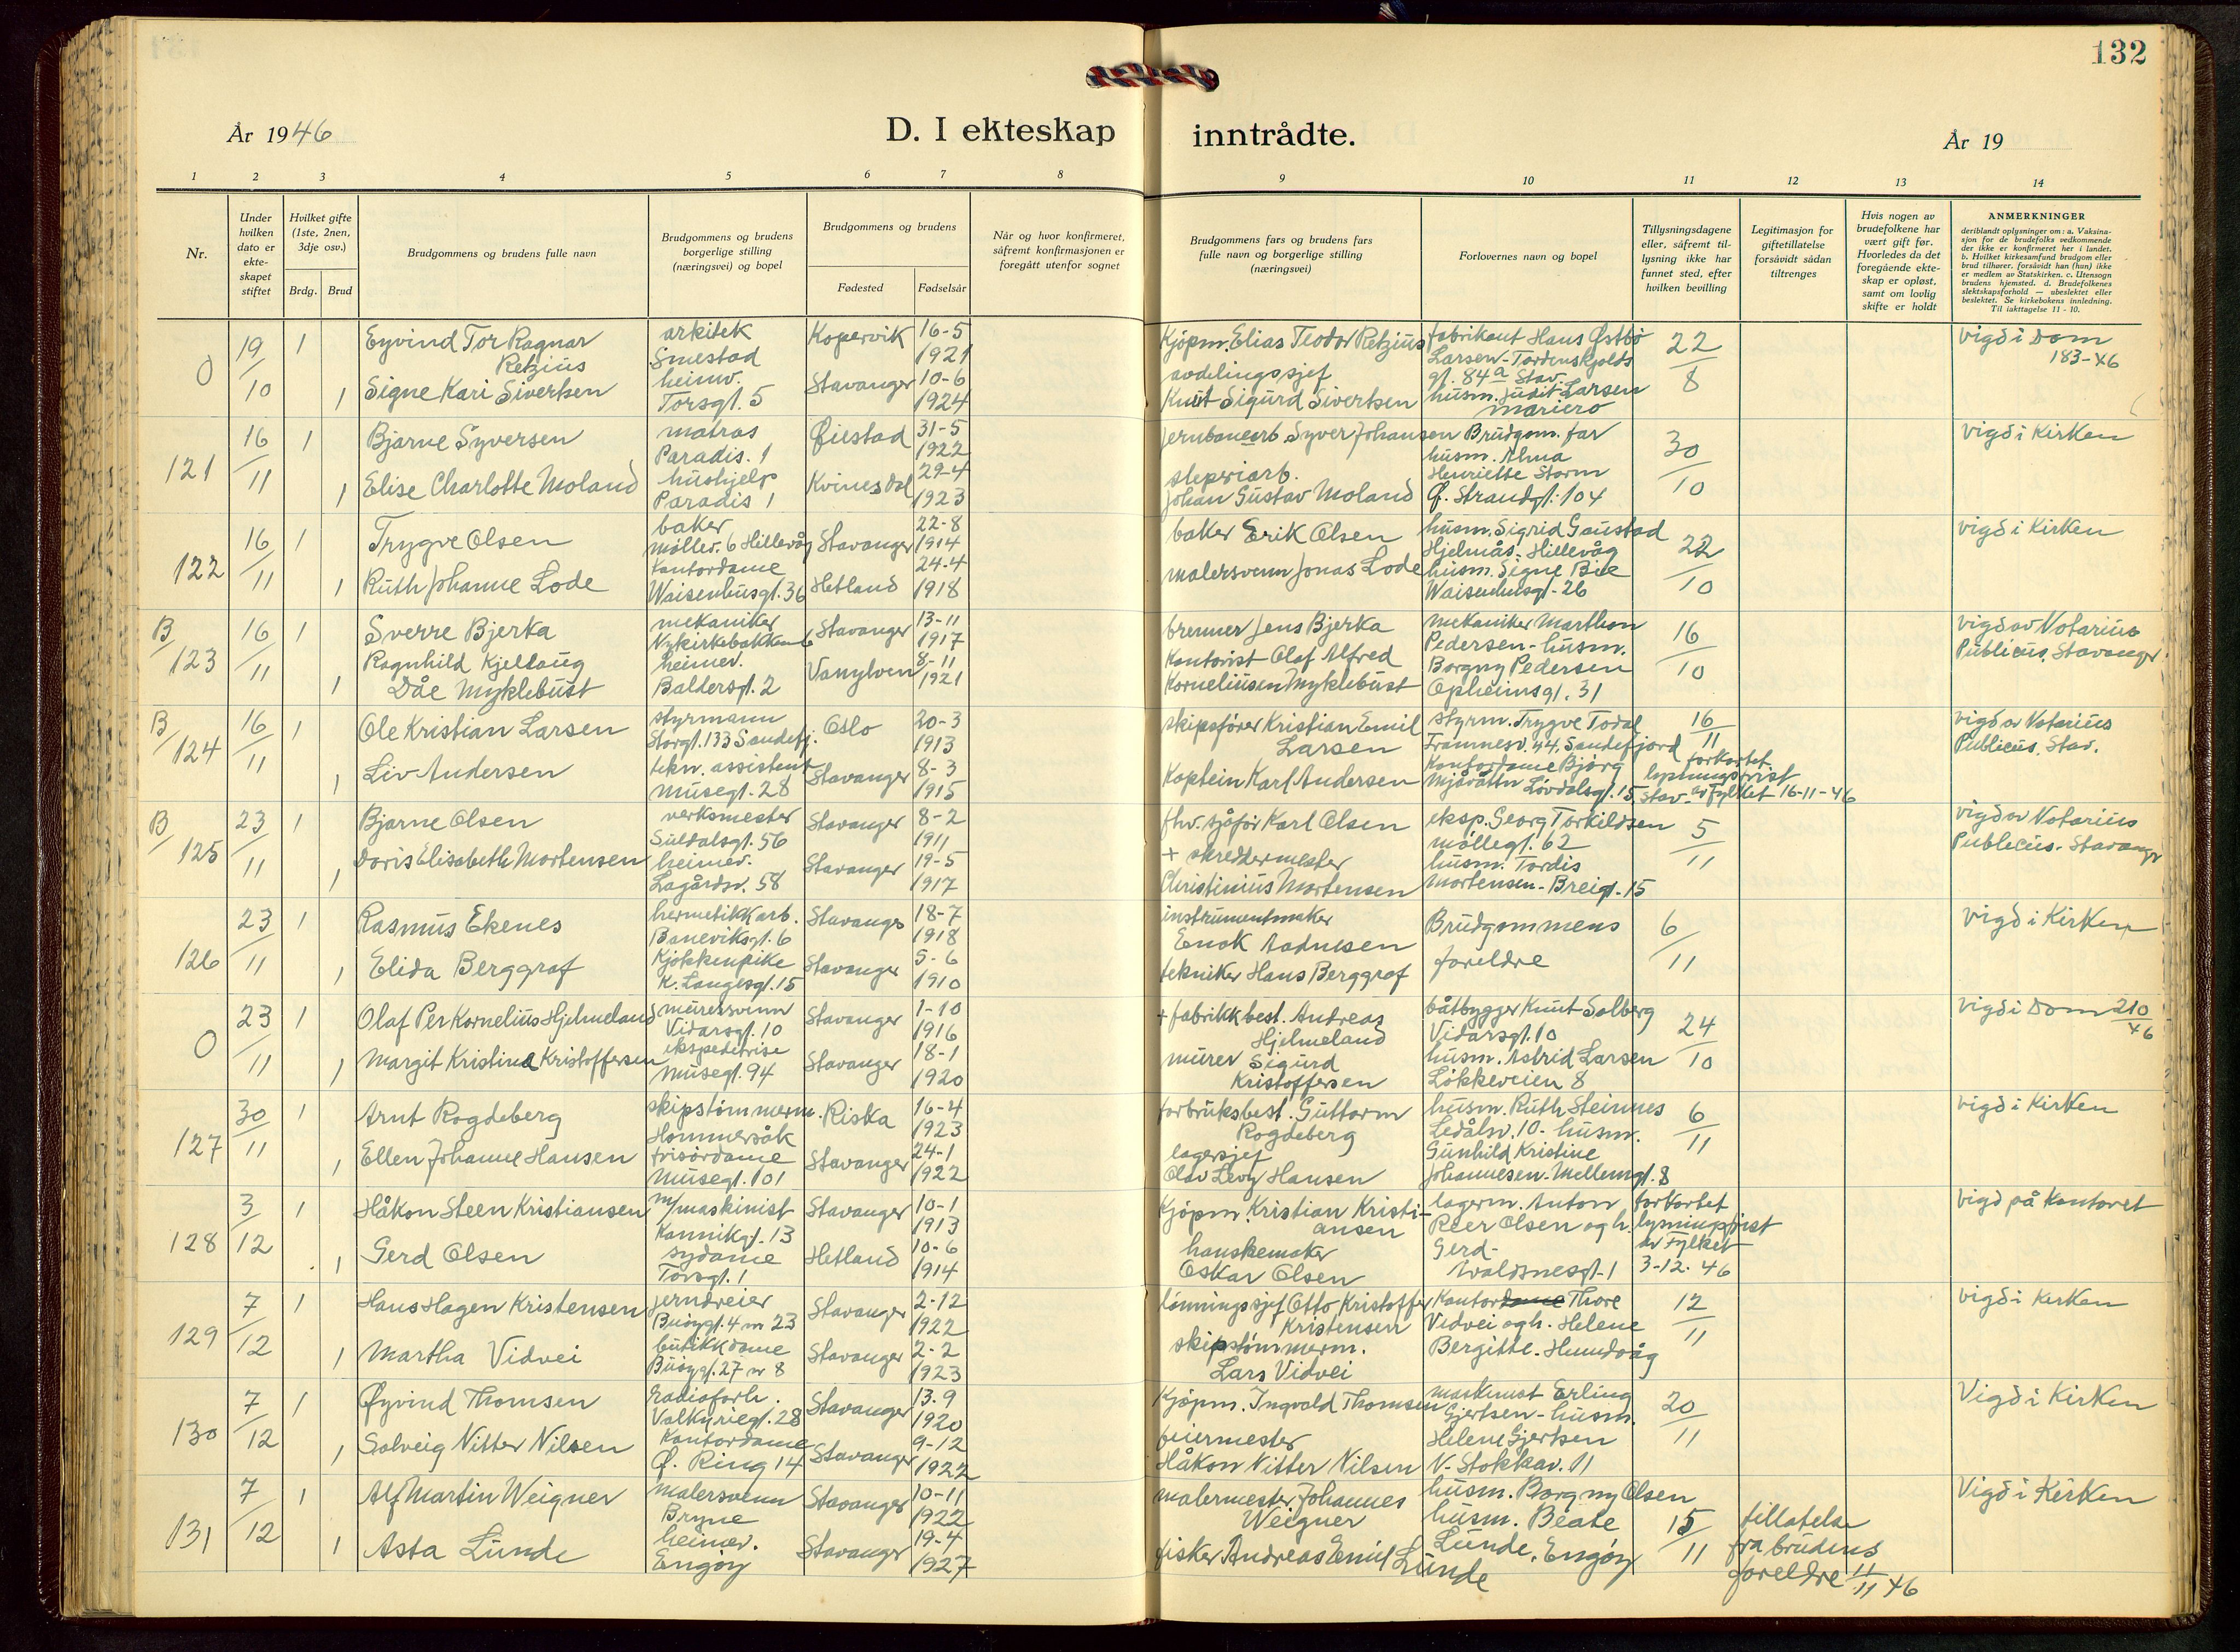 132
År 1946
D. I ekteskap inntrådte.
År 19
1 2 3 4 5 6 7 8 9 10 11 12 13 14
Nr.
Under hvilken dato er ekte-skapet stiftet
Hvilket gifte (1ste, 2nen, 3dje osv.)
Brdg. Brud
Brudgommens og brudens fulle navn
Brudgommens og brudens borgerlige stilling (næringsvei) og bopel
Brudgommens og brudens
Fødested
Fødselsår
Når og hvor konfirmeret, såfremt konfirmasjonen er foregått utenfor sognet
Brudgommens fars og brudens fars fulle navn og borgerlige stilling (næringsvei)
Forlovernes navn og bopel
Tillysningsdagene eller, såfremt til-lysning ikke har funnet sted, efter hvilken bevilling
Legitimasjon for giftetillatelse forsåvidt sådan tiltrenges
Hvis nogen av brudefolkene har vært gift før. Hvorledes da det foregående ekte-skap er opløst, samt om lovlig skifte er holdt
ANMERKNINGER
deriblandt oplysninger om: a. Vaksina-sjon for de brudefolks vedkommende der ikke er konfirmeret her i landet. b. Hvilket kirkesamfund brudgom eller brud tilhører, forsåvidt han (hun) ikke er medlem av Statskirken. c. Utensogn brudens hjemsted. d. Brudefolkenes slektskapsforhold — ubeslektet eller beslektet. Se kirkebokens innledning. Til iakttagelse 11 - 10.
0 19/10 1 Eyvind Tor Ragnar Retzius arkitek Smestad Kopervik 16-5 1921 Kjøpm. Elias Teodor Retzius fabrikant Hans Østbø Larsen - Tordenskjolds gt. 84a Stav. 22/8 vigd i Dom 183-46
1 Signe Kari Sivertsen heimv. Torsgt. 5 Stavanger 10-6 1924 avdelingssjef Knut Sigurd Sivertsen husm. Judit Larsen Mariero
121 16/11 1 Bjarne Syversen matros Paradis. 1 Øiestad 31-5 1922 jernbanearb. Syver Johansen Brudgom. far 30/10 vigd i Kirken
1 Elise Charlotte Moland hushjelp Paradis 1 Kvinesdal 29-4 1923 sleperiarb. Johan Gustav Moland husm. Alma Henriette Storm Ø. Strandgt. 104
122 16/11 1 Trygve Olsen baker Møllev. 6 Hillevåg Stavanger 22-8 1914 baker Erik Olsen husm. Sigrid Gaustad Hjelmås. Hillevåg 22/10 vigd i Kirken
1 Ruth Johanne Lode Kontordame Waisenhusgt. 36 Hetland 24-4 1918 malersvenn Jonas Lode husm. Signe Bie Waisenhusgt. 26
B/123 16/11 1 Sverre Bjerka mekaniker Nykirkebakken 6 Stavanger 13-11 1917 brenner Jens Bjerka Mekaniker Marthon Pedersen - husm. 16/10 vigd av Notarius Publicus, Stavanger
1 Ragnhild Kjellaug Dåe Myklebust heimev. Baldersgt. 2 Vanylven 8-11 1921 Kontorist Olaf Alfred Korneliusen Myklebust Borgny Pedersen Opheimsgt. 31
B/124 16/11 1 Ole Kristian Larsen styrmann Storgt. 133 Sandefj. Oslo 20-3 1913 skipsfører Kristian Emil Larsen styrm. Trygve Todal Framnesv. 44, Sandefjord 16/11 vigd av Notarius Publicus, Stav.
1 Liv Andersen tekn. assistent Musegt. 28 Stavanger 8-3 1915 Kaptein Karl Andersen Kontordame Bjørg Løvdalsgt. 15, Stav. forkortet lysningsfrist av Fylket 16-11-46
B/125 23/11 1 Bjarne Olsen verksmester Suldalsgt. 56 Stavanger 8-2 1911 fhv. sjåfør Karl Olsen eksp. Georg Torkildsen Møllegt. 62 5/11 vigd av Notarius Publicus. Stavanger
1 Doris Elisabeth Mortensen heimev. Lagårdsv. 58 Stavanger 19-5 1917 + skreddermester Christinius Mortensen husm. Tordis Mortensen - Breigt. 15
126 23/11 1 Rasmus Ekenes hermetikkarb. Baneviksgt. 6 Stavange 18-7 1918 instrumentmaker Enok Aadnesen Brudgommens foreldre 6/11 vigd i Kirken
1 Elida Berggraf Kjøkkenpike K. Langesgt. 15 Stavanger 5-6 1910 tekniker Hans Berggraf
0 23/11 1 Olaf Per Kornelius Hjelmeland murersvenn Vidarsgt. 10 Stavanger 1-10 1916 + fabrikkbest. Andreas Hjelmeland båtbygger Knut Solberg Vidarsgt. 10 24/10 vigd i Dom 210/46
1 Margit Kristine Kristoffersen ekspeditrise Musegt. 94 Stavanger 18-1 1920 murer Sigurd Kristoffersen husm. Astrid Larsen Løkkeveien 8
127 30/11 1 Arnt Rogdeberg skipstømmerm. Hommersåk Riska 16-4 1923 forbruksbest. Guttorm Rogdeberg husm. Ruth Steinnes Ledålsv. 10 - husm. 6/11 vigd i Kirken
1 Ellen Johanne Hansen frisørdame Musegt. 101 Stavanger 24-1 1922 lagersjef Olav Levy Hansen Gunhild Kristine Johannesen - Mellemgt. 8
128 3/12 1 Håkon Steen Kristiansen m/maskinist Kannikgt. 13 Stavanger 10-1 1913 Kjøpm. Kristian Kristi-ansen lagerm. Anton Peer Olsen og h. Gerd - forkortet lysningsfrist av Fylket 3-12-46 vigd på Kontoret
1 Gerd Olsen sydame Torsgt. 1 Hetland 10-6 1914 hanskemaker Oskar Olsen
129 7/12 1 Hans Hagen Kristensen jerndreier Stavanger 2-12 1922 lønningssjef Otto Kristoffer Kristensen Kontordame Thore Vidvei og h. Helene 12/11 vigd i Kirken
1 Martha Vidvei butikkdame Stavanger 2-2 1923 skipstømmerm. Lars Vidvei Bergitte - Hundvåg
130 7/12 1 Øyvind Thomsen Radioforh. Valkyriegt. 28 Stavanger 13.9 1920 Kjøpm. Ingvald Thomsen maskinist Erling Gjertsen - husm. 20/11 Vigd i Kirken
1 Solveig Nitter Nilsen Kontordame Ø. Ring 14 Stavanger 9-12 1922 feiermester Håkon Nitter Nilsen Helene Gjertsen V. Stokkav. 11
131 7/12 1 Alf Martin Weigner malersvenn Bryne Stavanger 10-11 1922 malermester Johannes Weigner husm. Borgny Olsen 15/11 tillatelse fra brudens foreldre 11/11 46 Vigd i Kirken
1 Asta Lunde heimev. Engøy Stavanger 19-4 1927 fisker Andreas Emil Lunde husm. Beate Lunde, Engøy